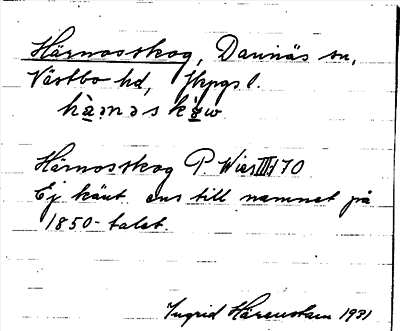 Härnosskog, Dannäs sn,
Västbo hd, Jkpgs l.
hä̀rnɔskɔ̀w
Härnosskog P. Wies III:170
Ej känt ens till namnet på
1850-talet.
Ingrid Härenstam 1931